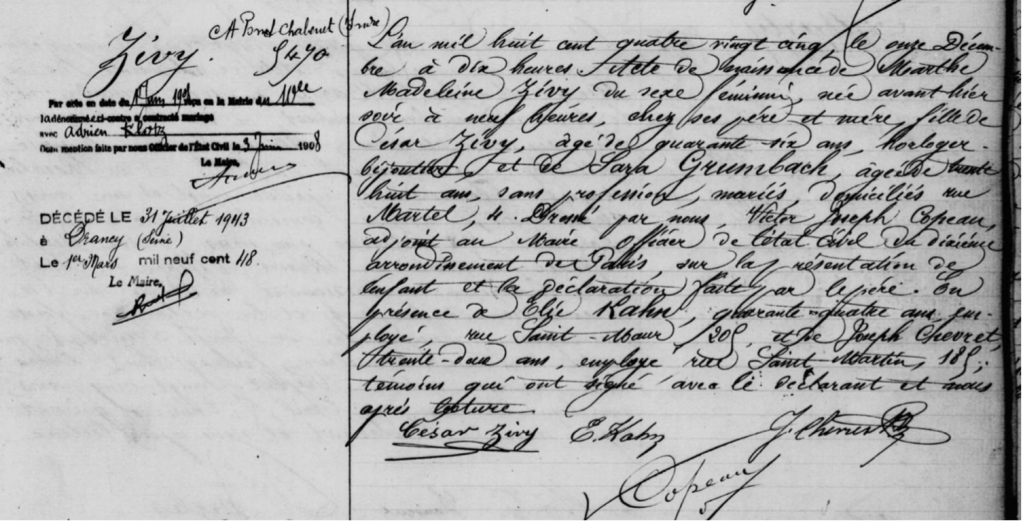 Zivy.
5470
Par acte en date du 1er Juin 1908 reçu en la Mairie du 10e
la dénommée ci-contre a contracté mariage
avec Adrien Klotz
Dont mention faite par nous Officier de l'Etat Civil le 3 Juin 1908
Le Maire,
DÉCÉDÉ LE 31 Juillet 1943
à Drancy (Seine)
Le 1er Mars mil neuf cent 48.
Le Maire,
L'an mil huit cent quatre vingt cinq, le onze Décem-
bre à dix heures Acte de naissance de Marthe
Madeleine Zivy du sexe féminin, née avant hier
soir à neuf heures, chez ses père et mère, fille de
César Zivy, âgé de quarante six ans, horloger-
bijoutier et de Sara Grumbach, âgée de trente
huit ans, sans profession, mariés, domiciliés rue
Martel, 4. Dressé par nous, Victor Joseph Copeau,
adjoint au Maire officier de l'état civil du dixième
arrondissement de Paris, sur la présentation de
l'enfant et la déclaration faite par le père. En
présence de Elie Kahn, quarante-quatre ans, em-
ployé, rue Saint-Maur, 205, et de Joseph Chevret,
trente-deux ans, employé rue Saint Martin, 185,
témoins qui ont signé avec le déclarant et nous
après lecture.
César Zivy E. Kahn
Copeau